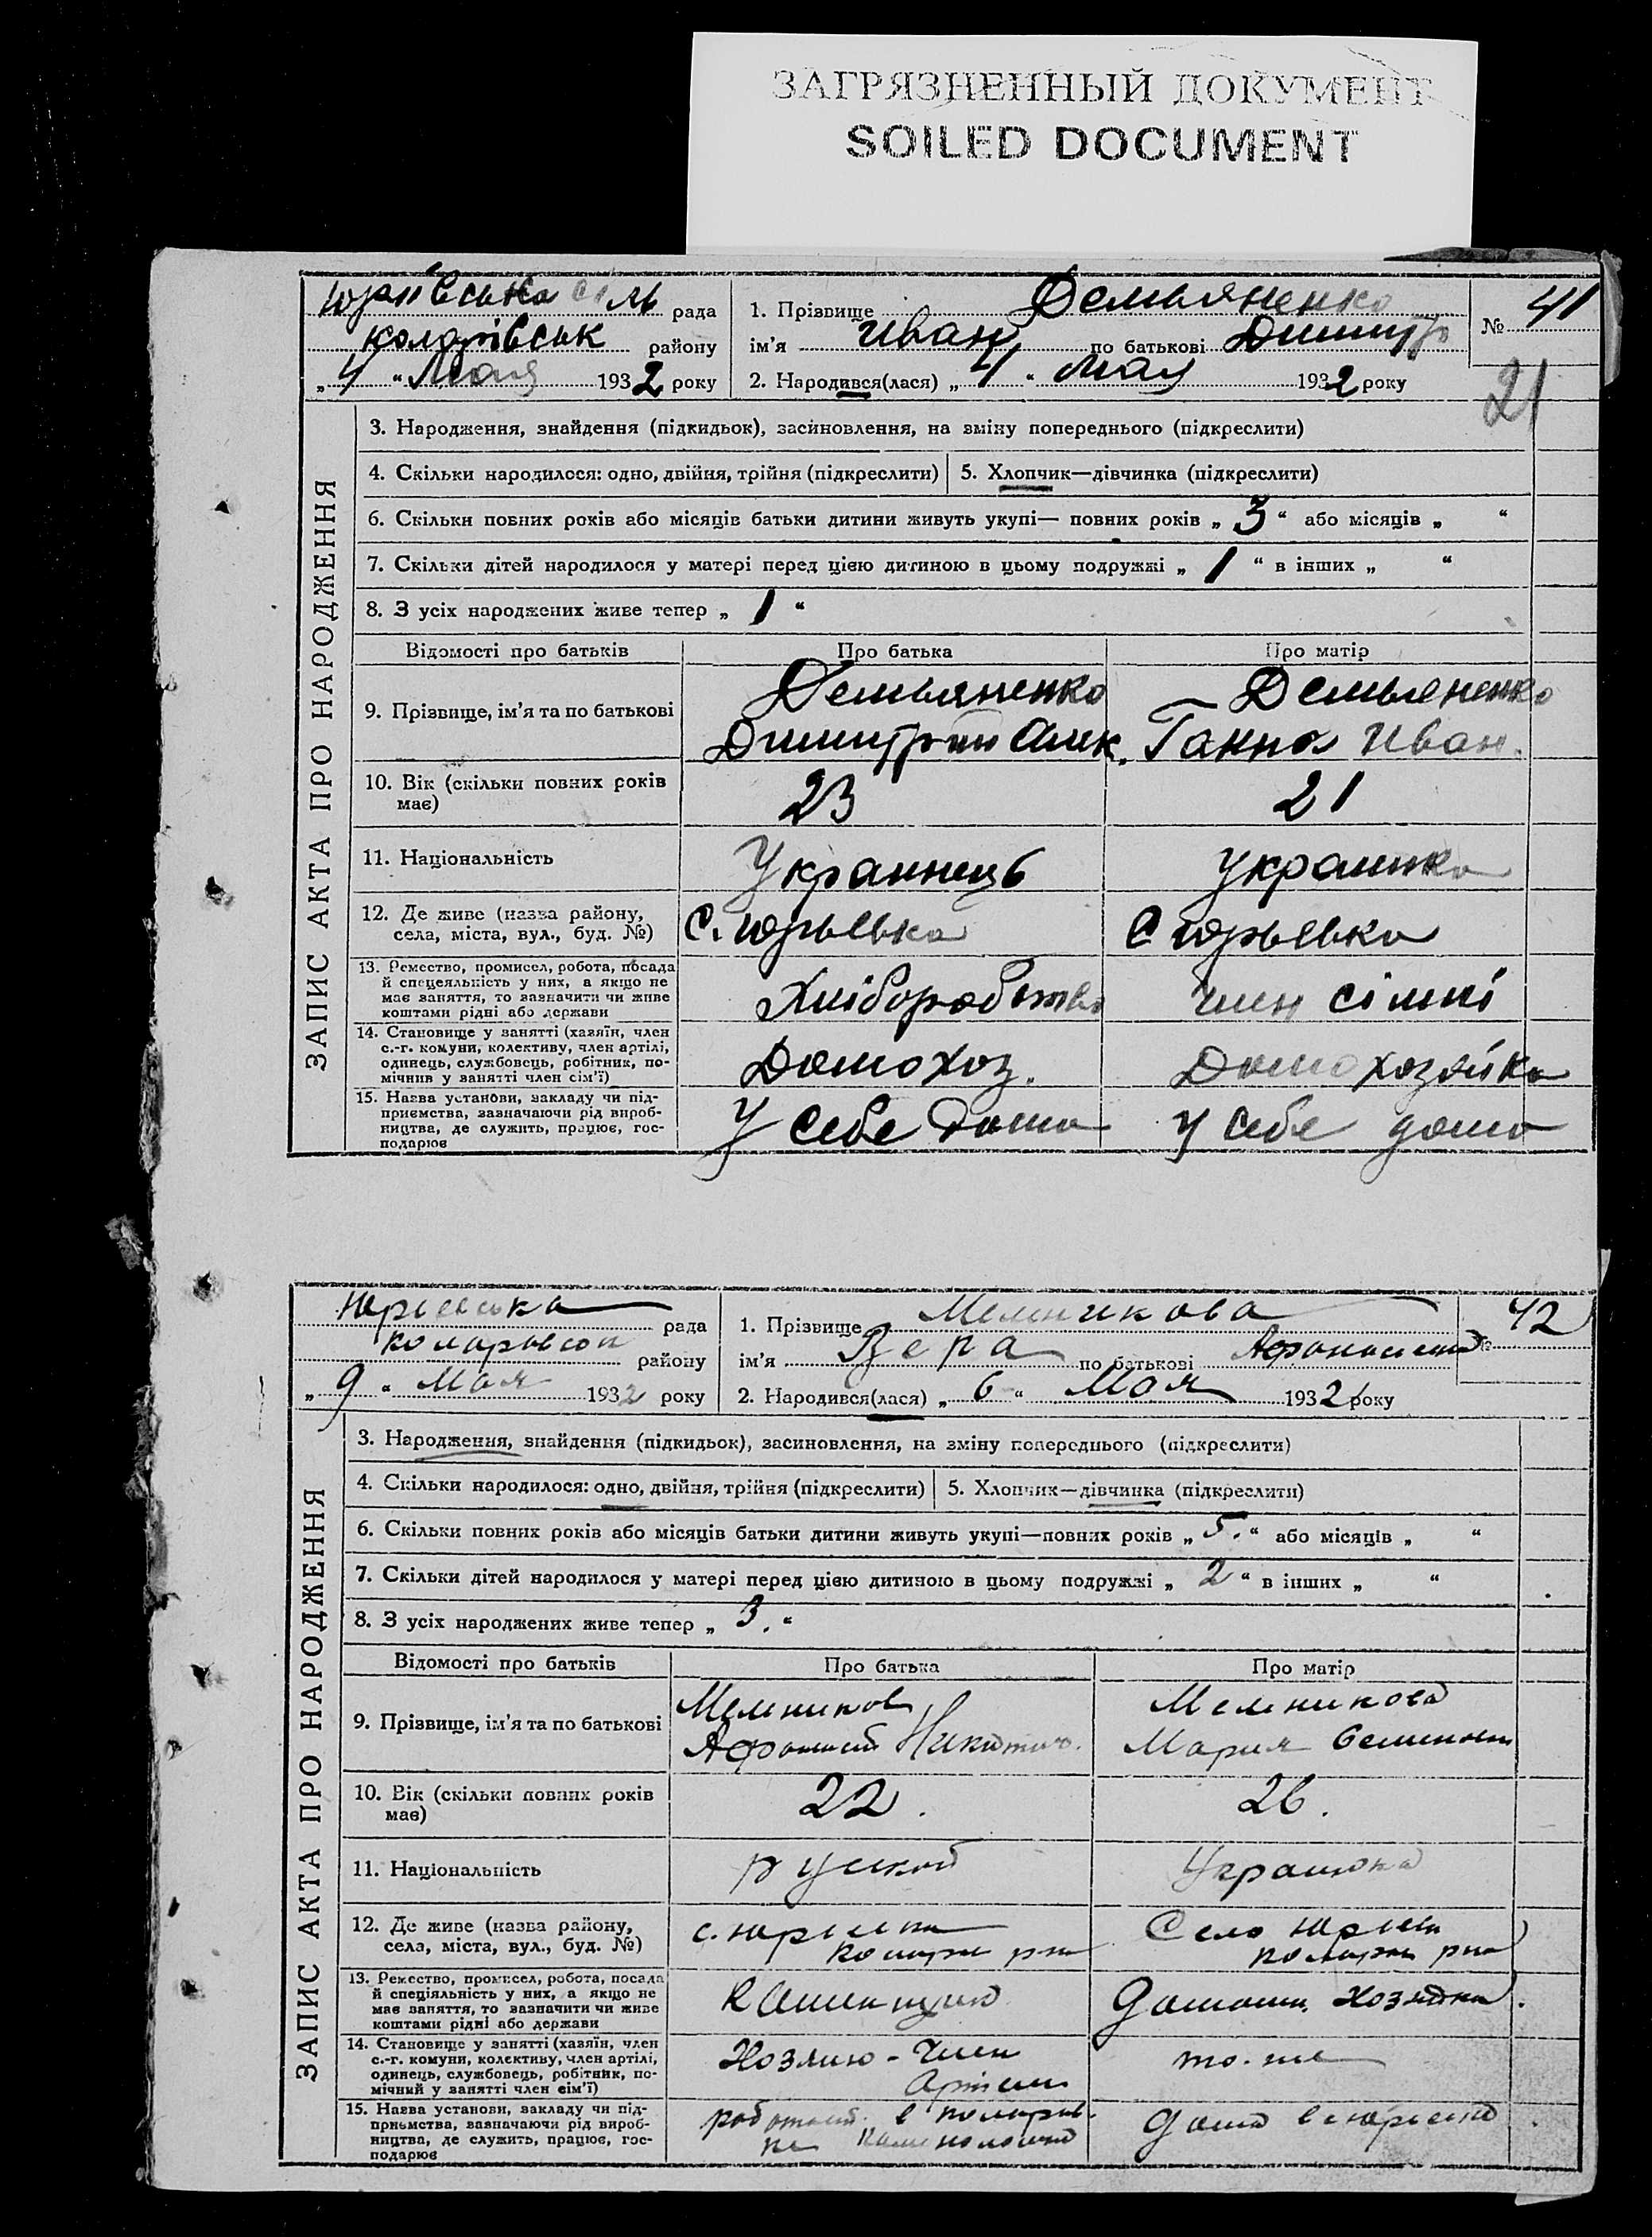 ЗАГРЯЗНЕННЫЙ ДОКУМЕНТ
SOILED DOCUMENT
Юріївська сіль рада
району
„ 4 “ Мая 1932 року
1. Прізвище Демьяненко
ім’я Иван по батькові Димитр
2. Народився(лася) „ 4 “ Мая 1932 року
№ 41
21
ЗАПИС АКТА ПРО НАРОДЖЕННЯ
3. Народження, знайдення (підкидьок), засиновлення, на зміну попереднього (підкреслити)
4. Скільки народилося: одно, двійня, трійня (підкреслити)
5. Хлопчик—дівчинка (підкреслити)
6. Скільки повних років або місяців батьки дитини живуть укупі— повних років „ 3 “ або місяців „ “
7. Скільки дітей народилося у матері перед цією дитиною в цьому подружжі „ 1 “ в інших „ “
8. З усіх народжених живе тепер „ 1 “
Відомості про батьків
Про батька
Про матір
9. Прізвище, ім’я та по батькові
Демьяненко
Димитрий Алек.
Демьяненко
Ганна Иван.
10. Вік (скільки повних років
має)
23
21
11. Національність
Украинець
Украинка
12. Де живе (назва району,
села, міста, вул., буд. №)
С. Юрьевка
С Юрьевка
13. Ремество, промисел, робота, посада
й спецеяльність у них, а якщо не
має заняття, то зазначити чи живе
коштами рідні або держави
Хліборобство
член сімні
14. Становище у занятті (хазяїн, член
с.-г. комуни, колективу, член артілі,
одинець, службовець, робітник, по-
мічнив у занятті член сім’ї)
Домохоз.
Домохозяйка
15. Назва установи, закладу чи під-
приємства, зазначаючи рід вироб-
ництва, де служить, працює, гос-
подарює
У себе дома
У себе дома
Юриевська рада
району
„ 9 “ Мая 1932 року
1. Прізвище Мельникова
ім’я Вера по батькові
2. Народився(лася) „ 6 “ Мая 1932 року
№ 42
ЗАПИС АКТА ПРО НАРОДЖЕННЯ
3. Народження, знайдення (підкидьок), засиновлення, на зміну попереднього (підкреслити)
4. Скільки народилося: одно, двійня, трійня (підкреслити)
5. Хлопчик—дівчинка (підкреслити)
6. Скільки повних років або місяців батьки дитини живуть укупі—повних років „ 5. “ або місяців „ “
7. Скільки дітей народилося у матері перед цією дитиною в цьому подружжі „ 2 “ в інших „ “
8. З усіх народжених живе тепер „ 3. “
Відомості про батьків
Про батька
Про матір
9. Прізвище, ім’я та по батькові
Мельников
Никитич.
Мельникова
Мария
10. Вік (скільки повних років
має)
22.
26.
11. Національність
руский
Украинка
12. Де живе (назва району,
села, міста, вул., буд. №)
с.
Село
13. Ремество, промисел, робота, посада
й спеціяльність у них, а якщо не
має заняття, то зазначити чи живе
коштами рідні або держави
Хозяйка.
14. Становище у занятті (хазяїн, член
с.-г. комуни, колективу, член артілі,
одинець, службовець, робітник, по-
мічний у занятті член сім’ї)
Член
Артели
то-же
15. Назва установи, закладу чи під-
приємства, зазначаючи рід вироб-
ництва, де служить, працює, гос-
подарює
в
Дома в